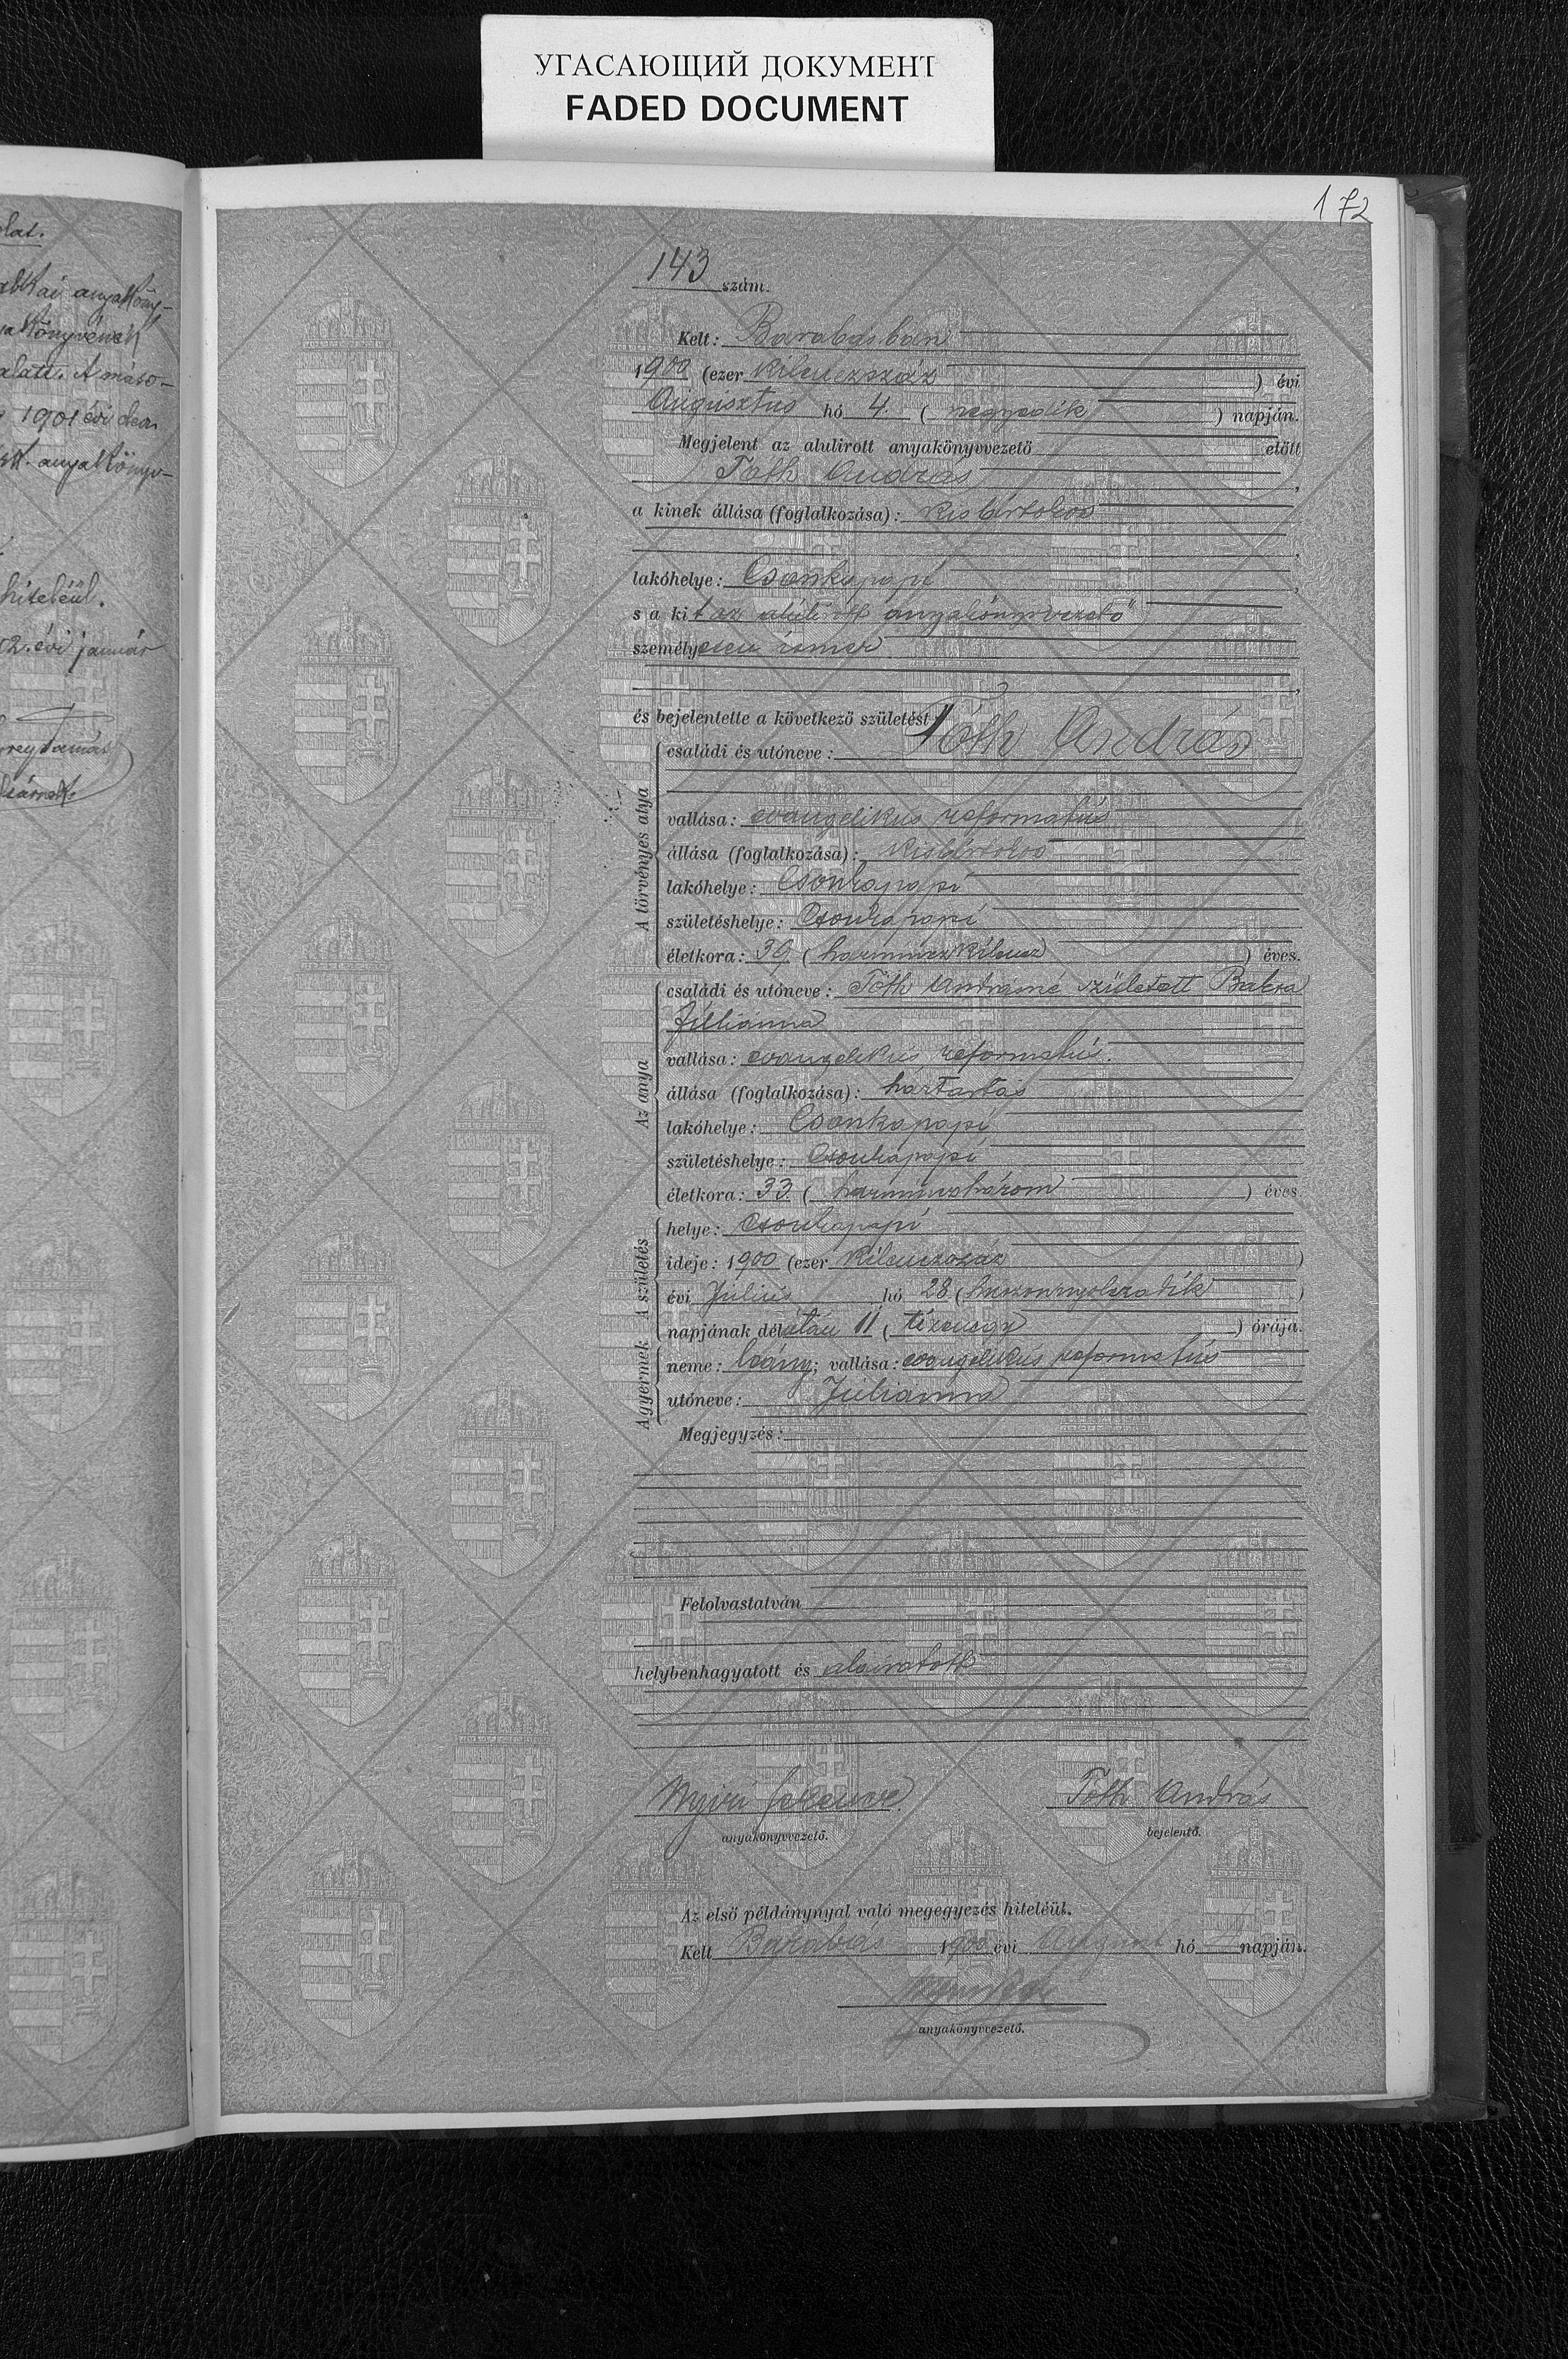 УГАСАЮЩИЙ ДОКУМЕНТ
FADED DOCUMENT
172
143 szám.
Kelt: Barabásban
1900 (ezer kilenczszáz ) évi
Augusztus hó 4. ( negyedik ) napján.
Megjelent az alulirott anyakönyvvezető előtt
Tóth András ,
a kinek állása (foglalkozása): kisbirtokos
,
lakóhelye: Csonkapapi ,
s a kit az alulirott anyakönyvvezető
személyesen ismer
,
és bejelentette a következő születést:
A törvényes atya
családi és utóneve: Tóth András
vallása: evangelikus reformatus
állása (foglalkozása): kisbirtokos
lakóhelye: Csonkapapi
születéshelye: Csonkapapi
életkora: 39 ( harminczkilencz ) éves.
Az anya
családi és utóneve: Tóth Andrásné született Baksa
Juliánna
vallása: evangelikus reformatus.
állása (foglalkozása): háztartás
lakóhelye: Csonkapapi
születéshelye: Csonkapapi
életkora: 33 ( harminczhárom ) éves.
A születés
helye: Csonkapapi
ideje: 1900 (ezer kilenczszáz )
évi Julius hó 28 ( huszonnyolczadik )
napjának délután 11 ( tizenegy ) órája.
A gyermek
neme: leány; vallása: evangelikus reformatus
utóneve: Juliánna
Megjegyzés:
Felolvastatván
helybenhagyatott és aláiratott
Nyiri Ferencz
anyakönyvvezető.
Tóth András
bejelentő.
Az első példánynyal való megegyezés hiteléül.
Kelt Barabás 1900 évi August hó 4 napján.
anyakönyvvezető.
olat.
anyaköny-
akönyvének
alatt. A máso-
1901 évi
anyakönyv-
hiteléül.
02. évi január